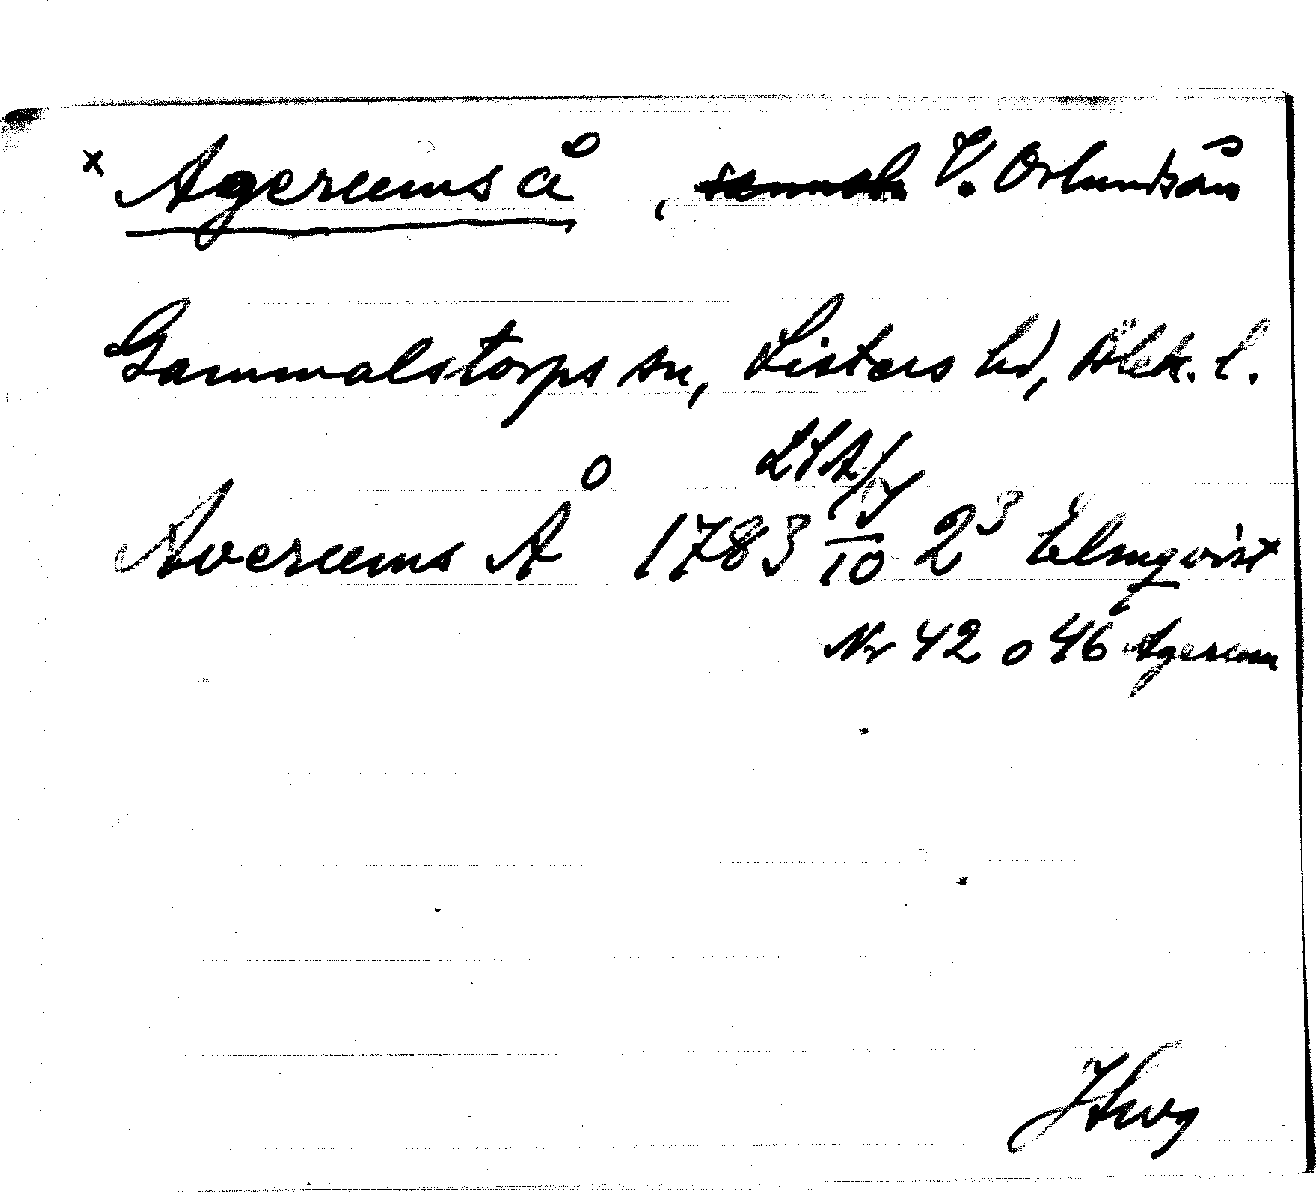 x Agerums å, V. Orlundsån
Gammalstorps sn, Listers hd, Blek. l.
LSA/
Averums Å 1783 10 2³ Elmqvist
Nr 42 o 46 Agerum